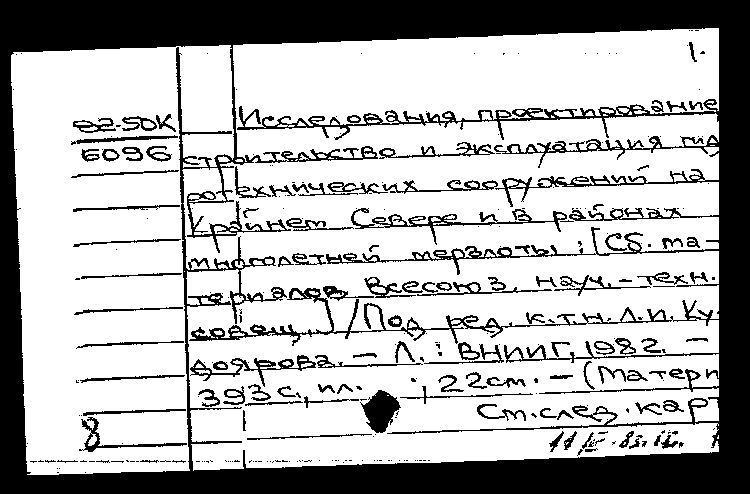 1.
82-50К
6096
Исследования, проектирование,
строительство и эксплуатация гид
ротехнических сооружений на
Крайнем Севере и в районах
многолетней мерзлоты : [Сб. ма-
териалов Всесоюз. науч.-техн.
совещ.] / Под ред. к.т.н. Л.И. Ку-
доярова. – Л. : ВНИИГ, 1982. –
393 с., ил. ; 22см. – (Матери
См. след. карт
8